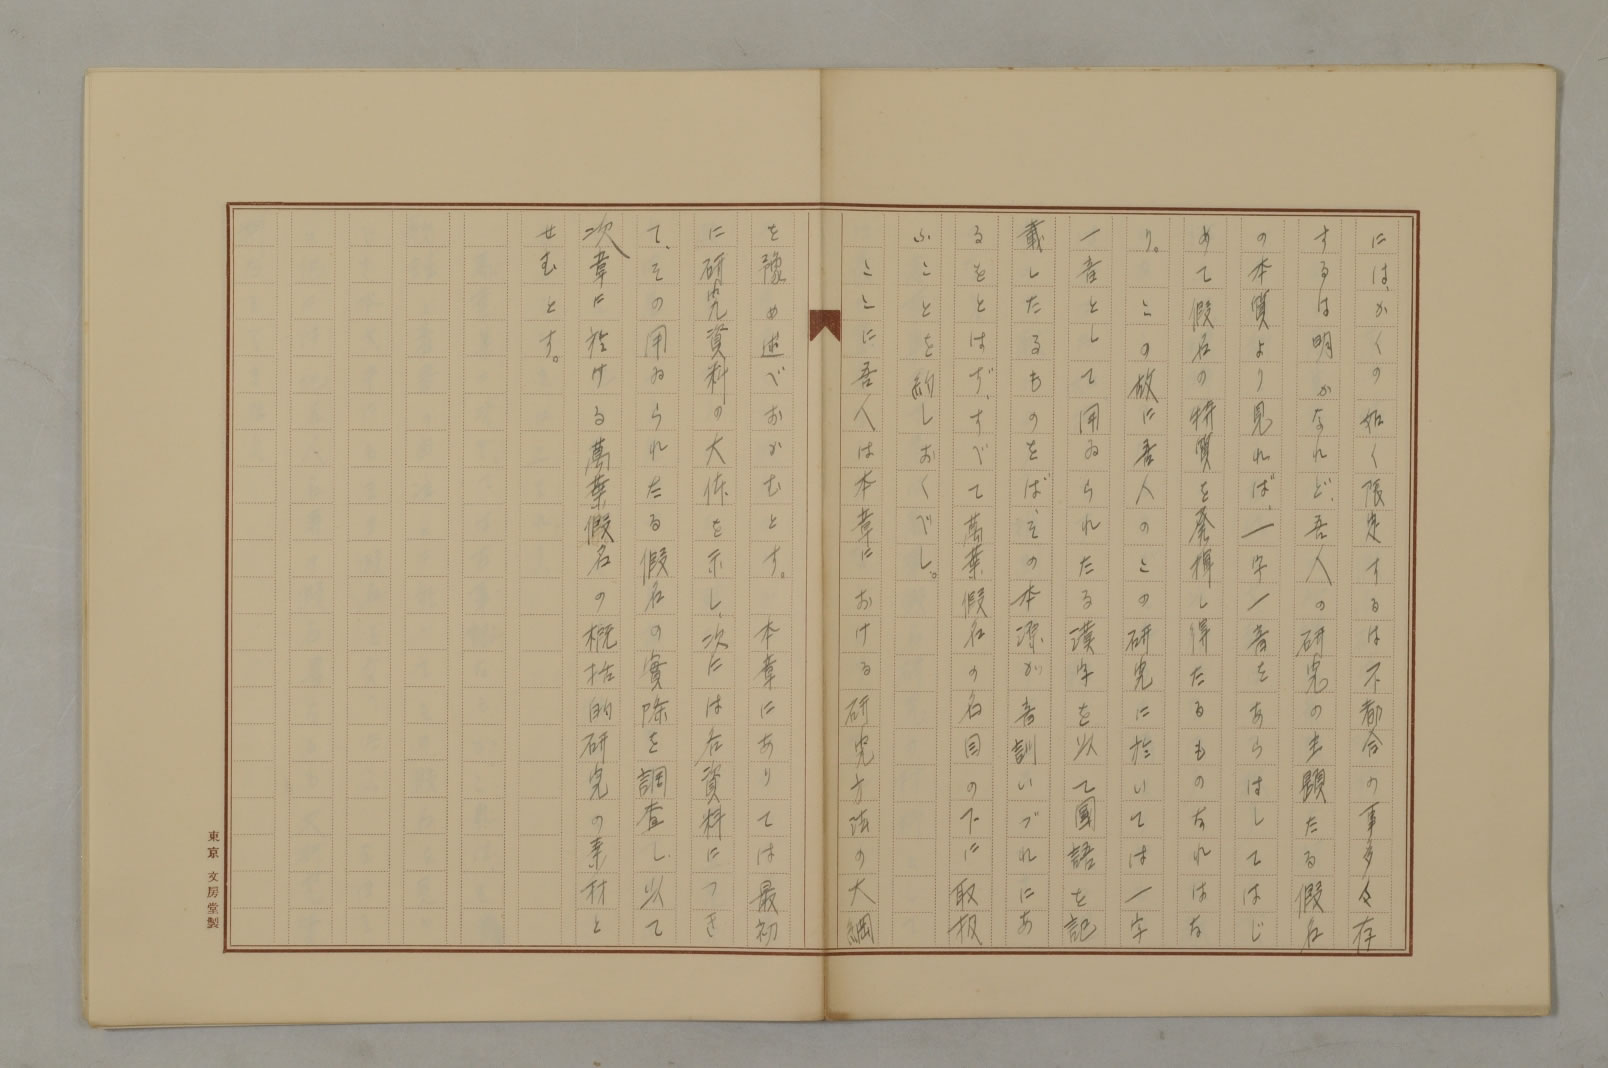 には、かくの如く限定するは不都合の事多々存
するは明かなれど、吾人の研究の主題たる假名
の本質より見れば、一字一音をあらはしてはじ
めて假名の特質を発揮し得たるものなればな
り。この故に吾人のこの研究に於いては一字
一音として用ゐられたる漢字を以て國語を記
載したるものをば、その本源が音訓いづれにあ
るをとはず、すべて萬葉假名の名目の下に取扱
ふことを約しおくべし。
ここに吾人は本章における研究方法の大綱
を豫め述べおかむとす。本章にありては最初
に研究資料の大体を示し、次には各資料につき
て、その用ゐられたる假名の實際を調査し、以て
次章に於ける萬葉假名の概括的研究の素材と
せむとす。
東京 文房堂製